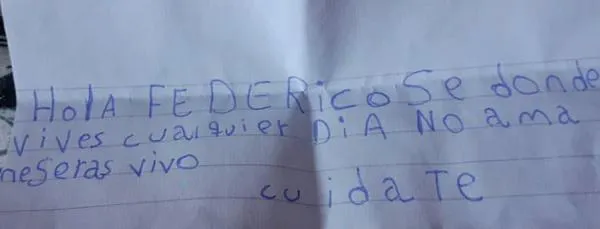 HolA FEDERicO Se donde
vives cualquier DiA NO ama
neseras vivo
cuidaTe